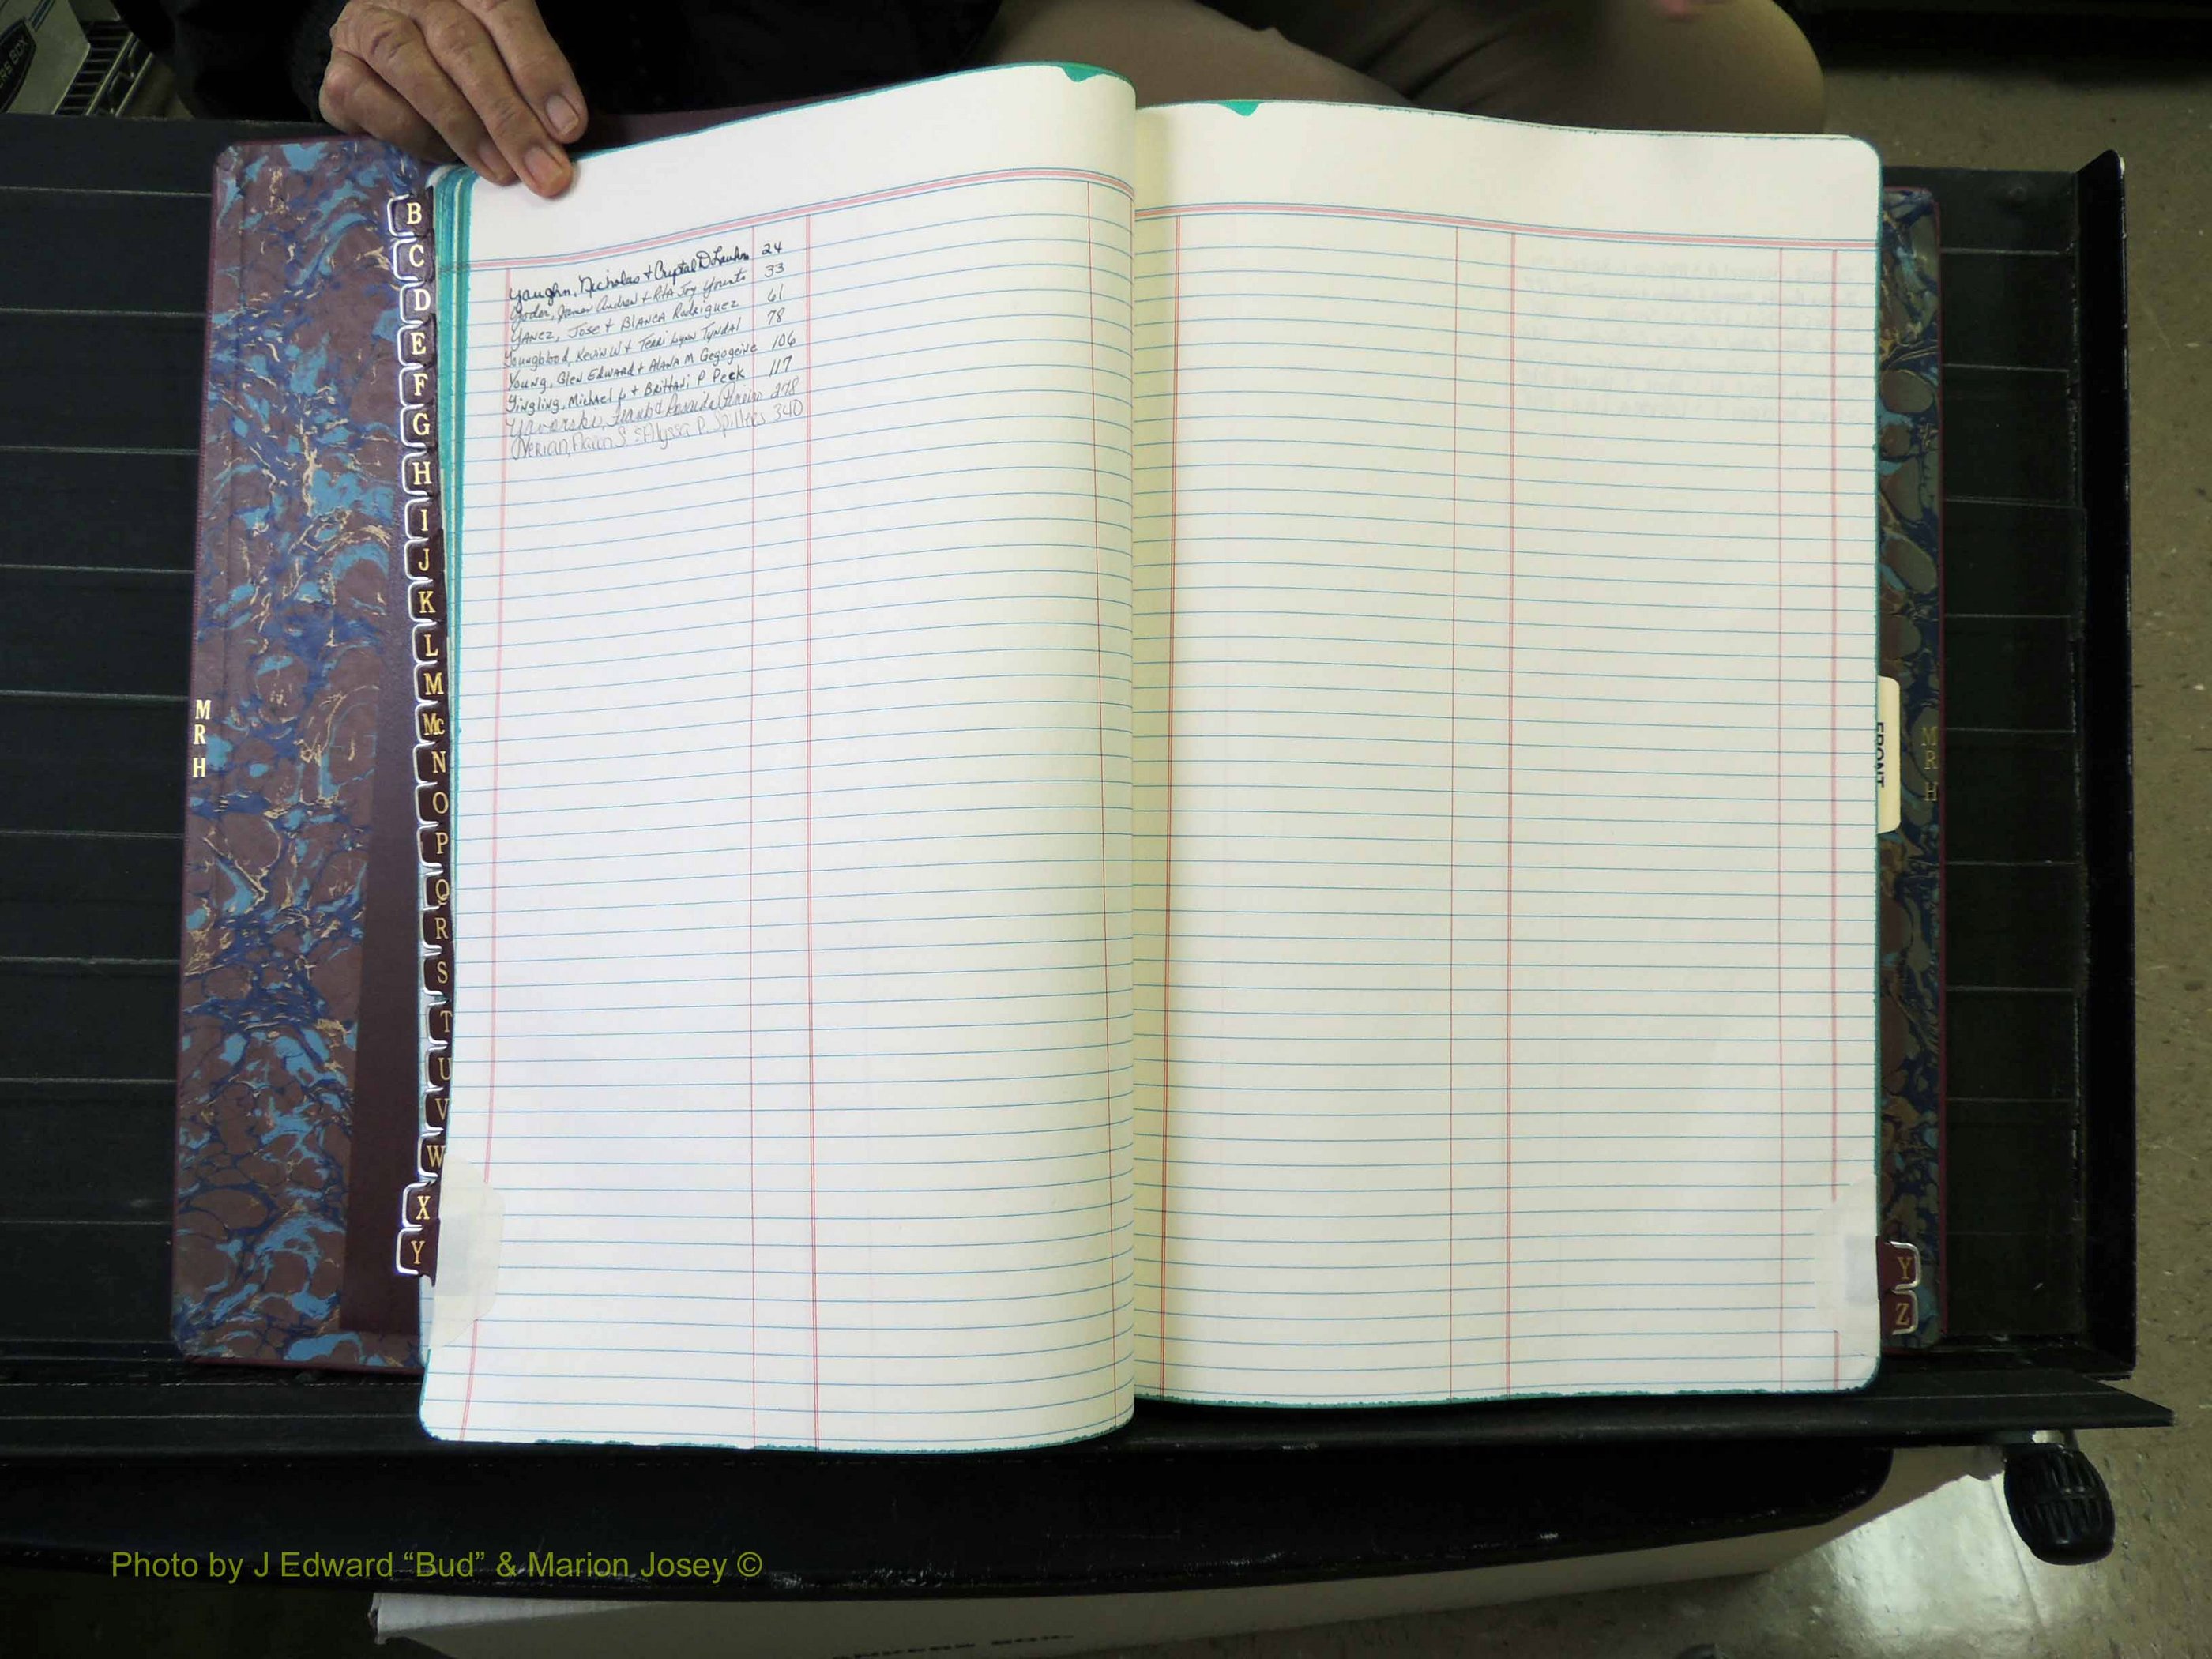 Yaughn, Nicholas + Crystal D 24
Yoder, James Andrew + Rita Joy Younts 33
Yanez, Jose + Blanca Rodriguez 61
Youngblood, Kevin W + Terri Lynn Tyndal 78
Young, Glen Edward + Alana M 106
Yingling, Michael + Brittani P Peek 117
Yavorski, Frank & 278
Yerian, Aaron S. & Alyssa P. Spillers 340
B
C
D
E
F
G
H
I
J
K
L
M
Mc
N
O
P
Q
R
S
T
U
V
W
X
Y
M
R
H
FRONT
M
R
H
Y
Z
Photo by J Edward “Bud” & Marion Josey ©